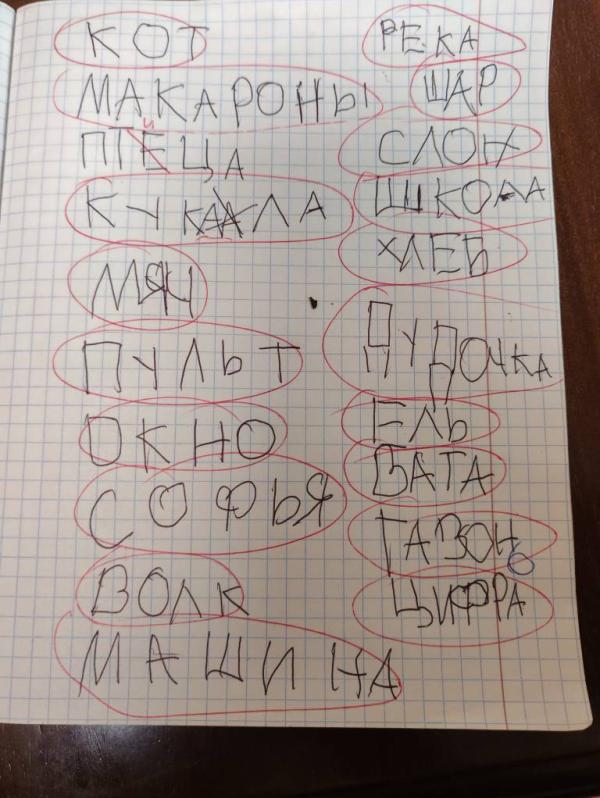 КОТ
МАКАРОНЫ
й
ПТЕЦА
КУКЛА
МЯЧ
ПУЛЬТ
ОКНО
СОФЬЯ
ВОЛК
МАШИНА
РЕКА
ШАР
СЛОН
ШКОЛА
ХЛЕБ
ДУДОЧКА
ЕЛЬ
ВАТА
ГАЗОН
ЦИФРА